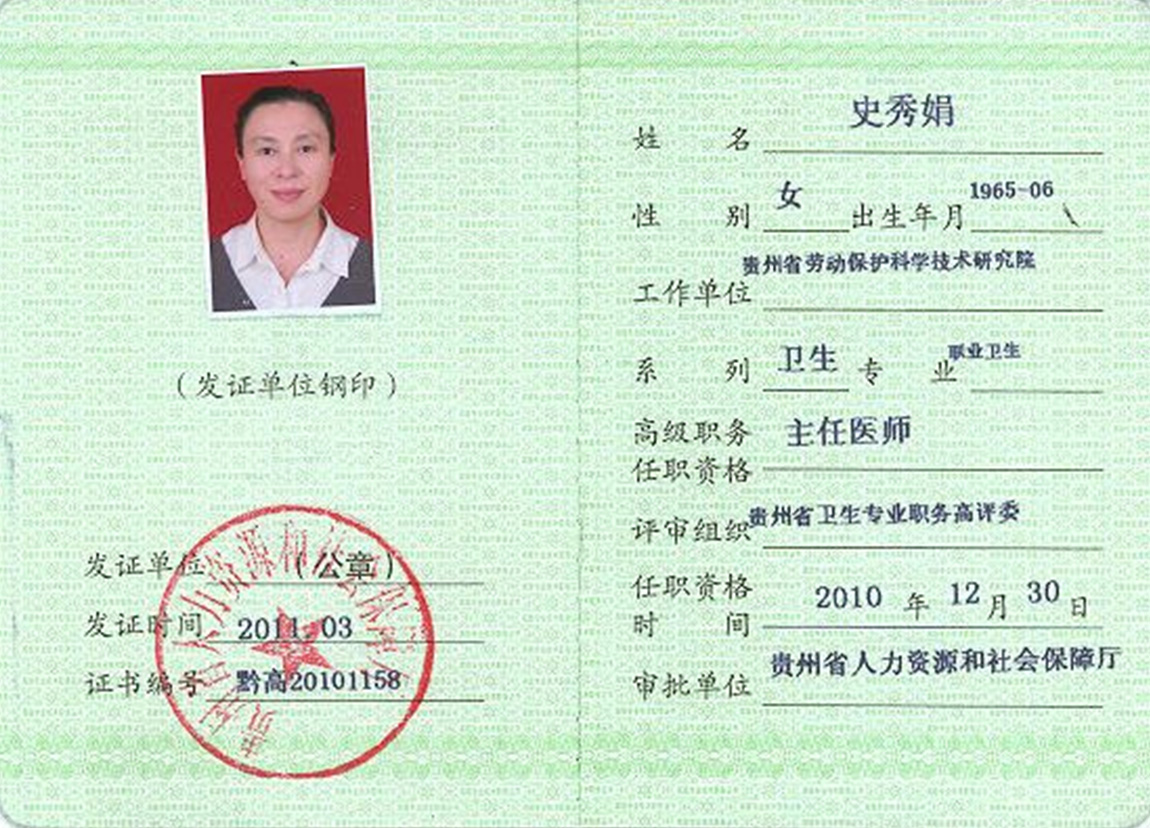 (发证单位钢印)
发证单位 (公章)
发证时间 2011.03
证书编号 黔高20101158
贵州省人力资源和社会保障厅
姓 名 史秀娟
性 别 女 出生年月 1965-06
工作单位 贵州省劳动保护科学技术研究院
系 列 卫生 专 业 职业卫生
高级职务
任职资格 主任医师
评审组织 贵州省卫生专业职务高评委
任职资格
时 间 2010 年 12 月 30 日
审批单位 贵州省人力资源和社会保障厅